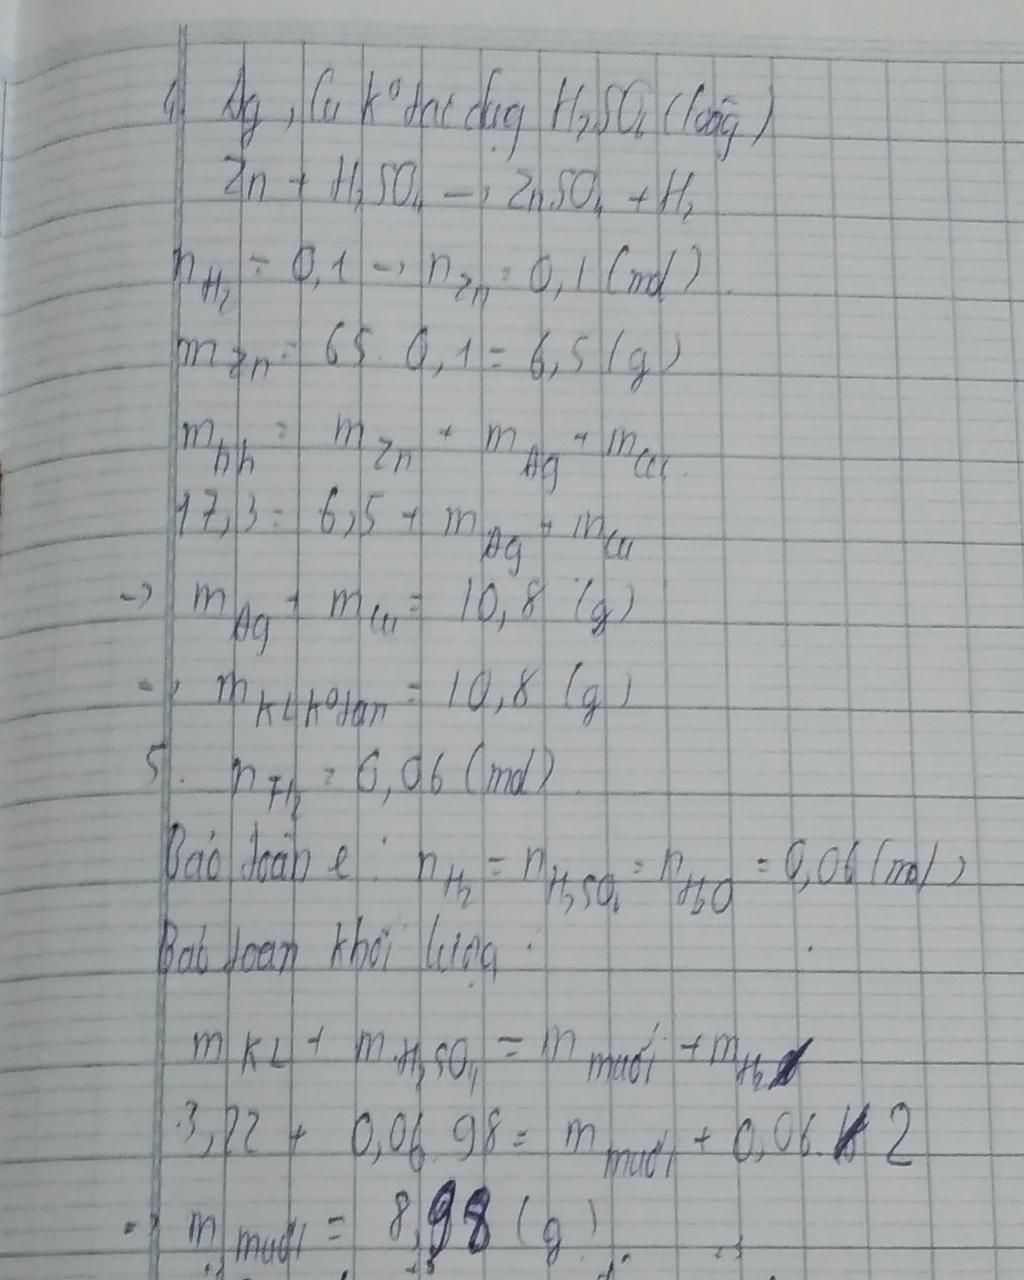 4. Ag, Cu k° tác dụng H₂SO₄ (loãng)
Zn + H₂SO₄ → ZnSO₄ + H₂
n H₂ = 0,1 → n Zn = 0,1 (mol)
m Zn = 65. 0,1 = 6,5 (g)
m hh = m Zn + m Ag + m Cu
17,3 = 6,5 + m Ag + m Cu
→ m Ag + m Cu = 10,8 (g)
=> m KL k° tan = 10,8 (g)
5. n H₂ = 0,06 (mol)
Bảo toàn e : n H₂ = n H₂SO₄ = n H₂O = 0,06 (mol)
Bảo toàn khối lượng :
m KL + m H₂SO₄ = m muối + m H₂
3,22 + 0,06 98 = m muối + 0,06. 2
=> m muối = 8,98 (g)